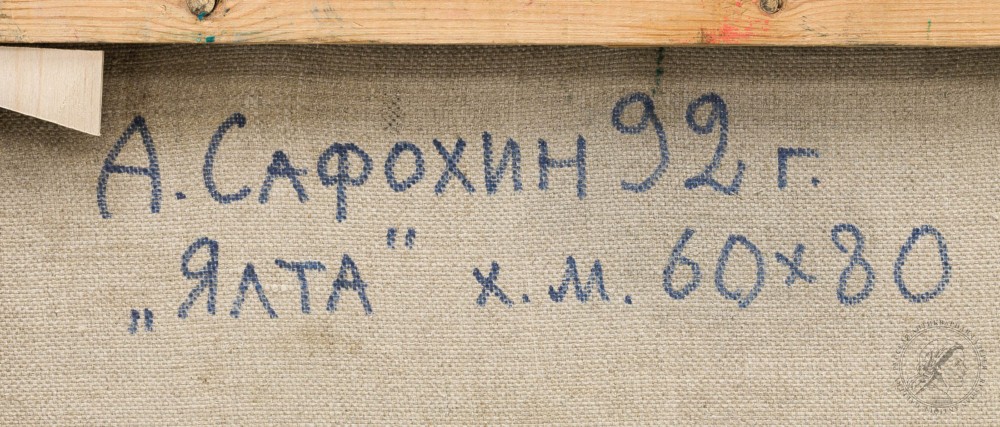 А. Сафохин 92 г.
„Ялта" х.м. 60х80